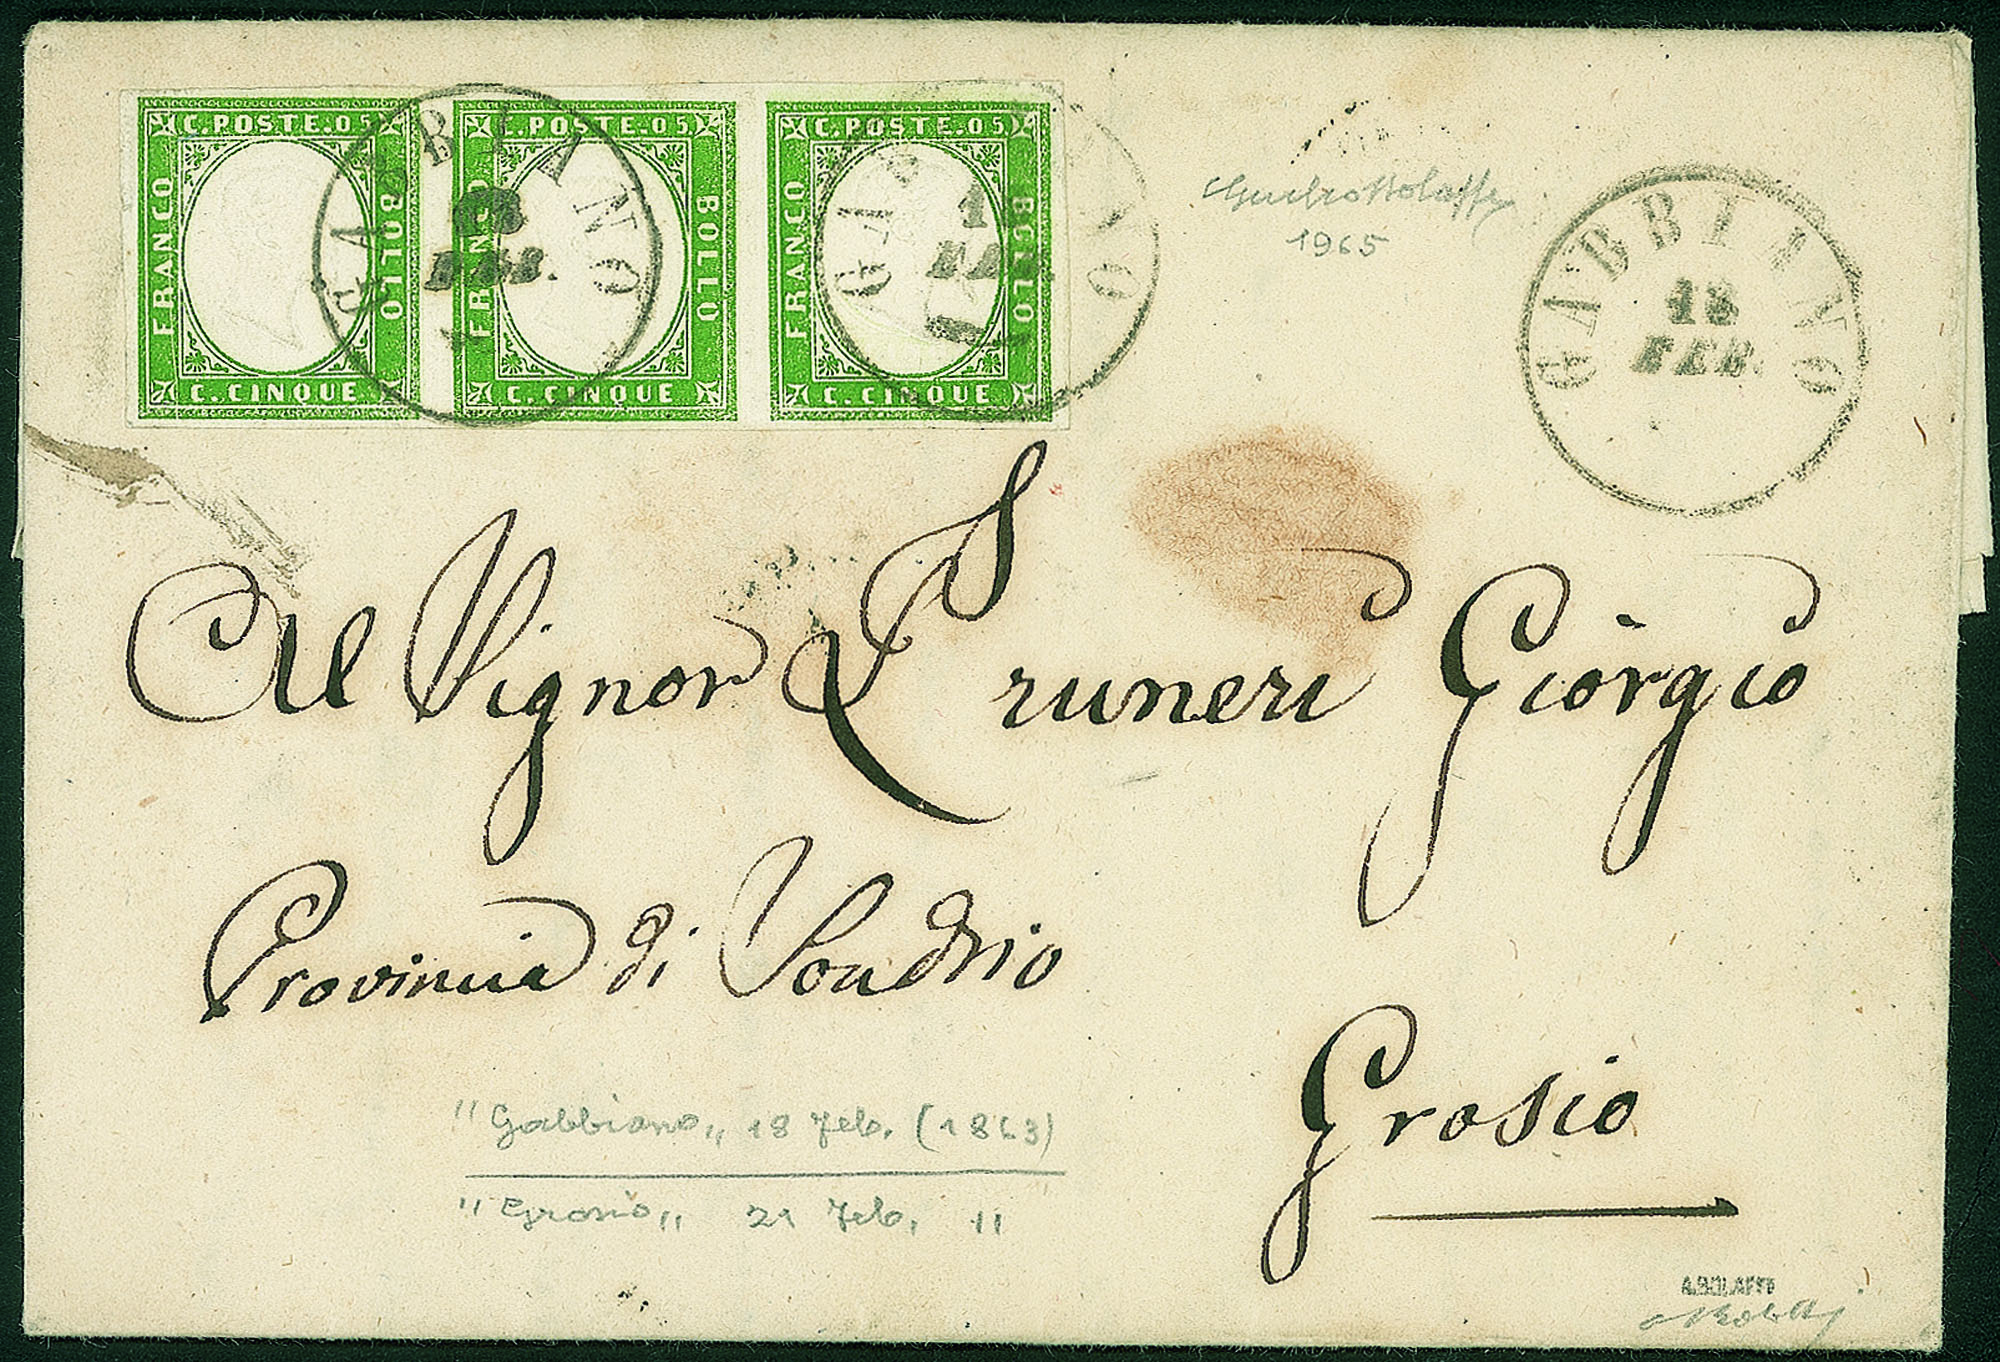 C.POSTE.05 C.POSTE.05 C.POSTE.05
FRANCO BOLLO FRANCO BOLLO FRANCO BOLLO
C. CINQUE C. CINQUE C. CINQUE
GABBIANO
18
FEB.
GABBIANO
1
FEB.
1965
GABBIANO
18
FEB.
Al Signor Pruneri Giorgio
Provincia di Sondrio
Grosio
"Gabbiano„ 18 Feb. (1863)
"Grosio„ 21 Feb. "
A.BOLAFFI